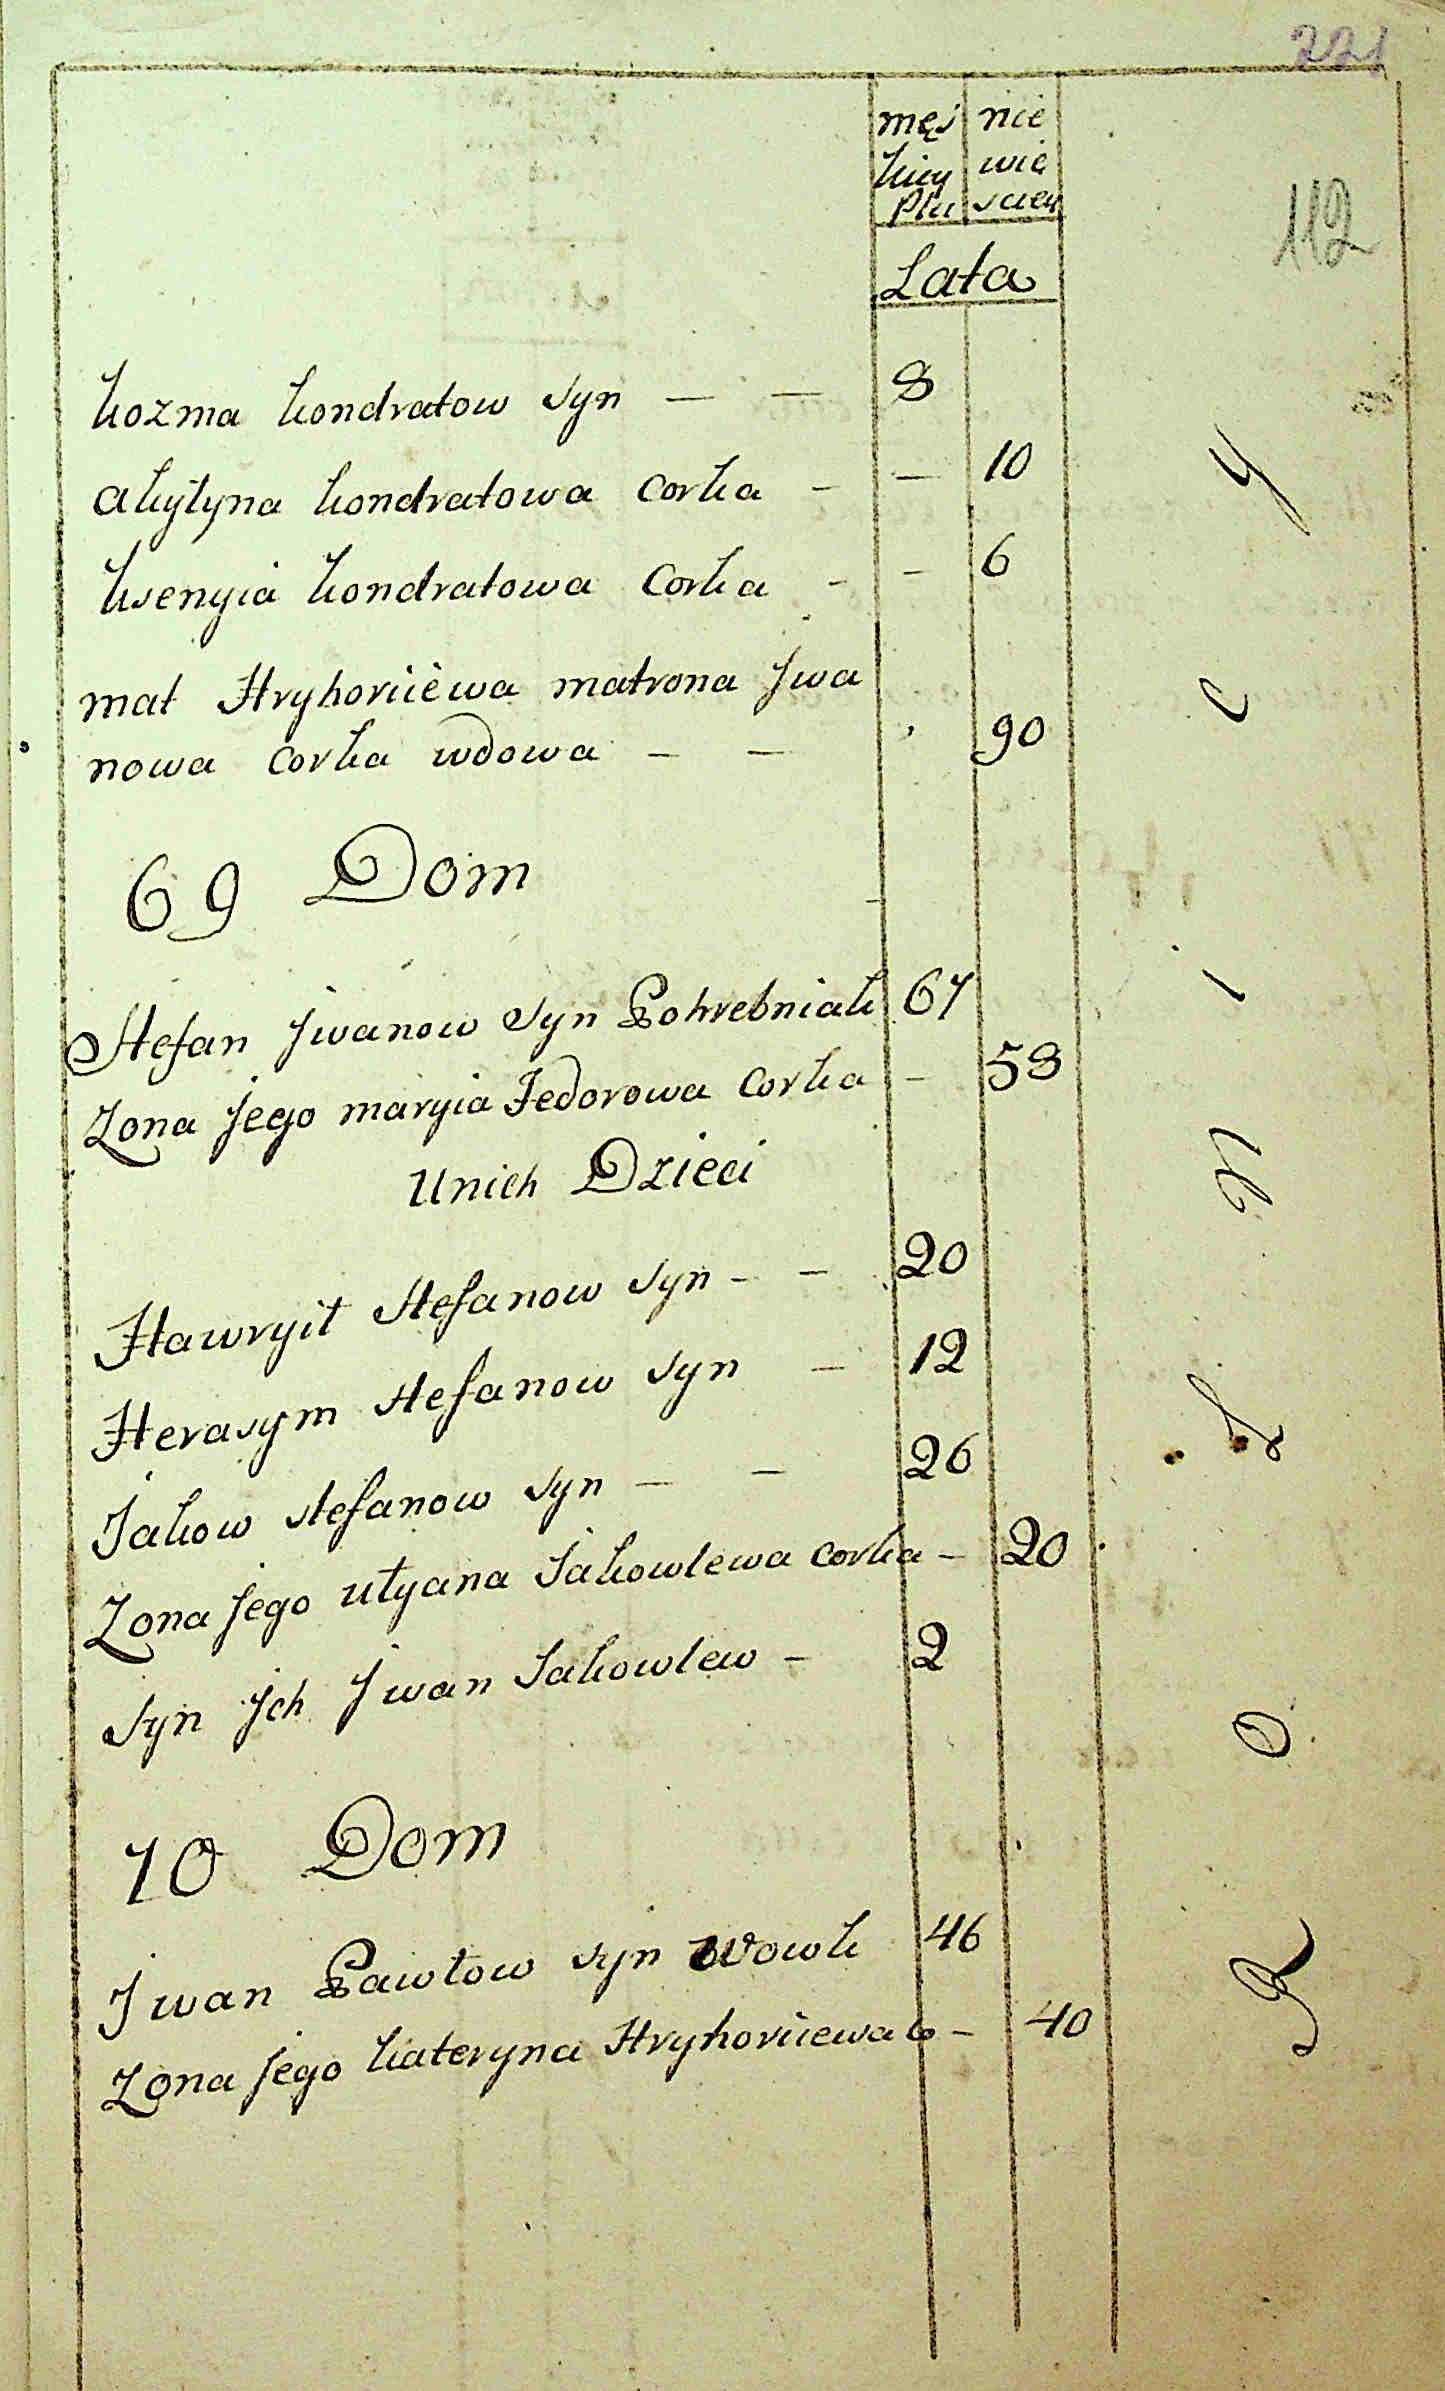 221
męs nie
kiey wie
Płu sciey
112
Lata
Kozma Kondratow syn — — 8
Akylyna Kondratowa corka - — 10
Ksenyia Kondratowa Corka - - 6
mat Hryhoriiewa matrona Jwa
nowa corka wdowa — — 90
69 Dom
Stefan Jwanow syn Pohrebniak 67
Zona Jego maryia Fedorowa Corka - 58
Unich Dzieci
Hawryił Stefanow syn - - 20
Herasym Stefanow syn - 12
Jakow Stefanow syn — - 26
Zona Jego ułyana Jakowlewa corka - 20
syn Jch Jwan Jakowlew - 2
70 Dom
Jwan Pawłow syn Wowk 46
Zona Jego Kateryna Hryhoriiewa c - 40